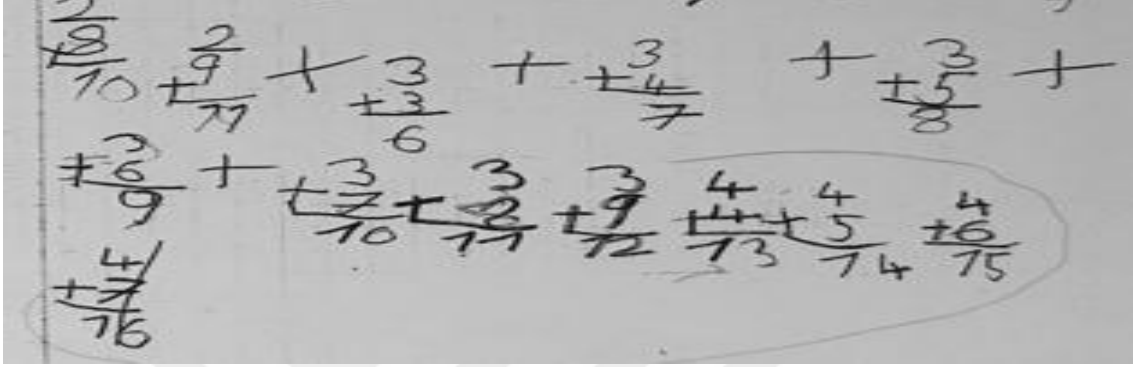 2 +8 10 2 +9 11 + 3 +3 6 + 3 +4 7 + 3 +5 8 +
3 +6 9 + 3 +7 10 3 +8 11 3 +9 12 4 +4 13 4 +5 14 4 +6 15
4 +7 16